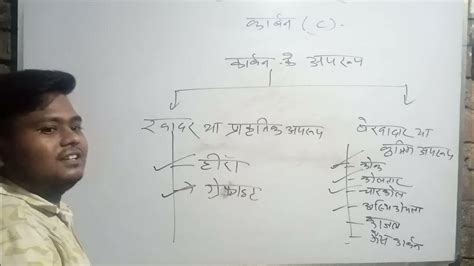 कार्बन (C).
कार्बन के अपरूप
रवादार या प्राकृतिक अपरूप
हीरा
ग्रेफाइट
बेरवादार या
कृत्रिम अपरूप
कोक
कोलतार
चारकोल
अस्थि कोयला
काजल
गैस कार्बन